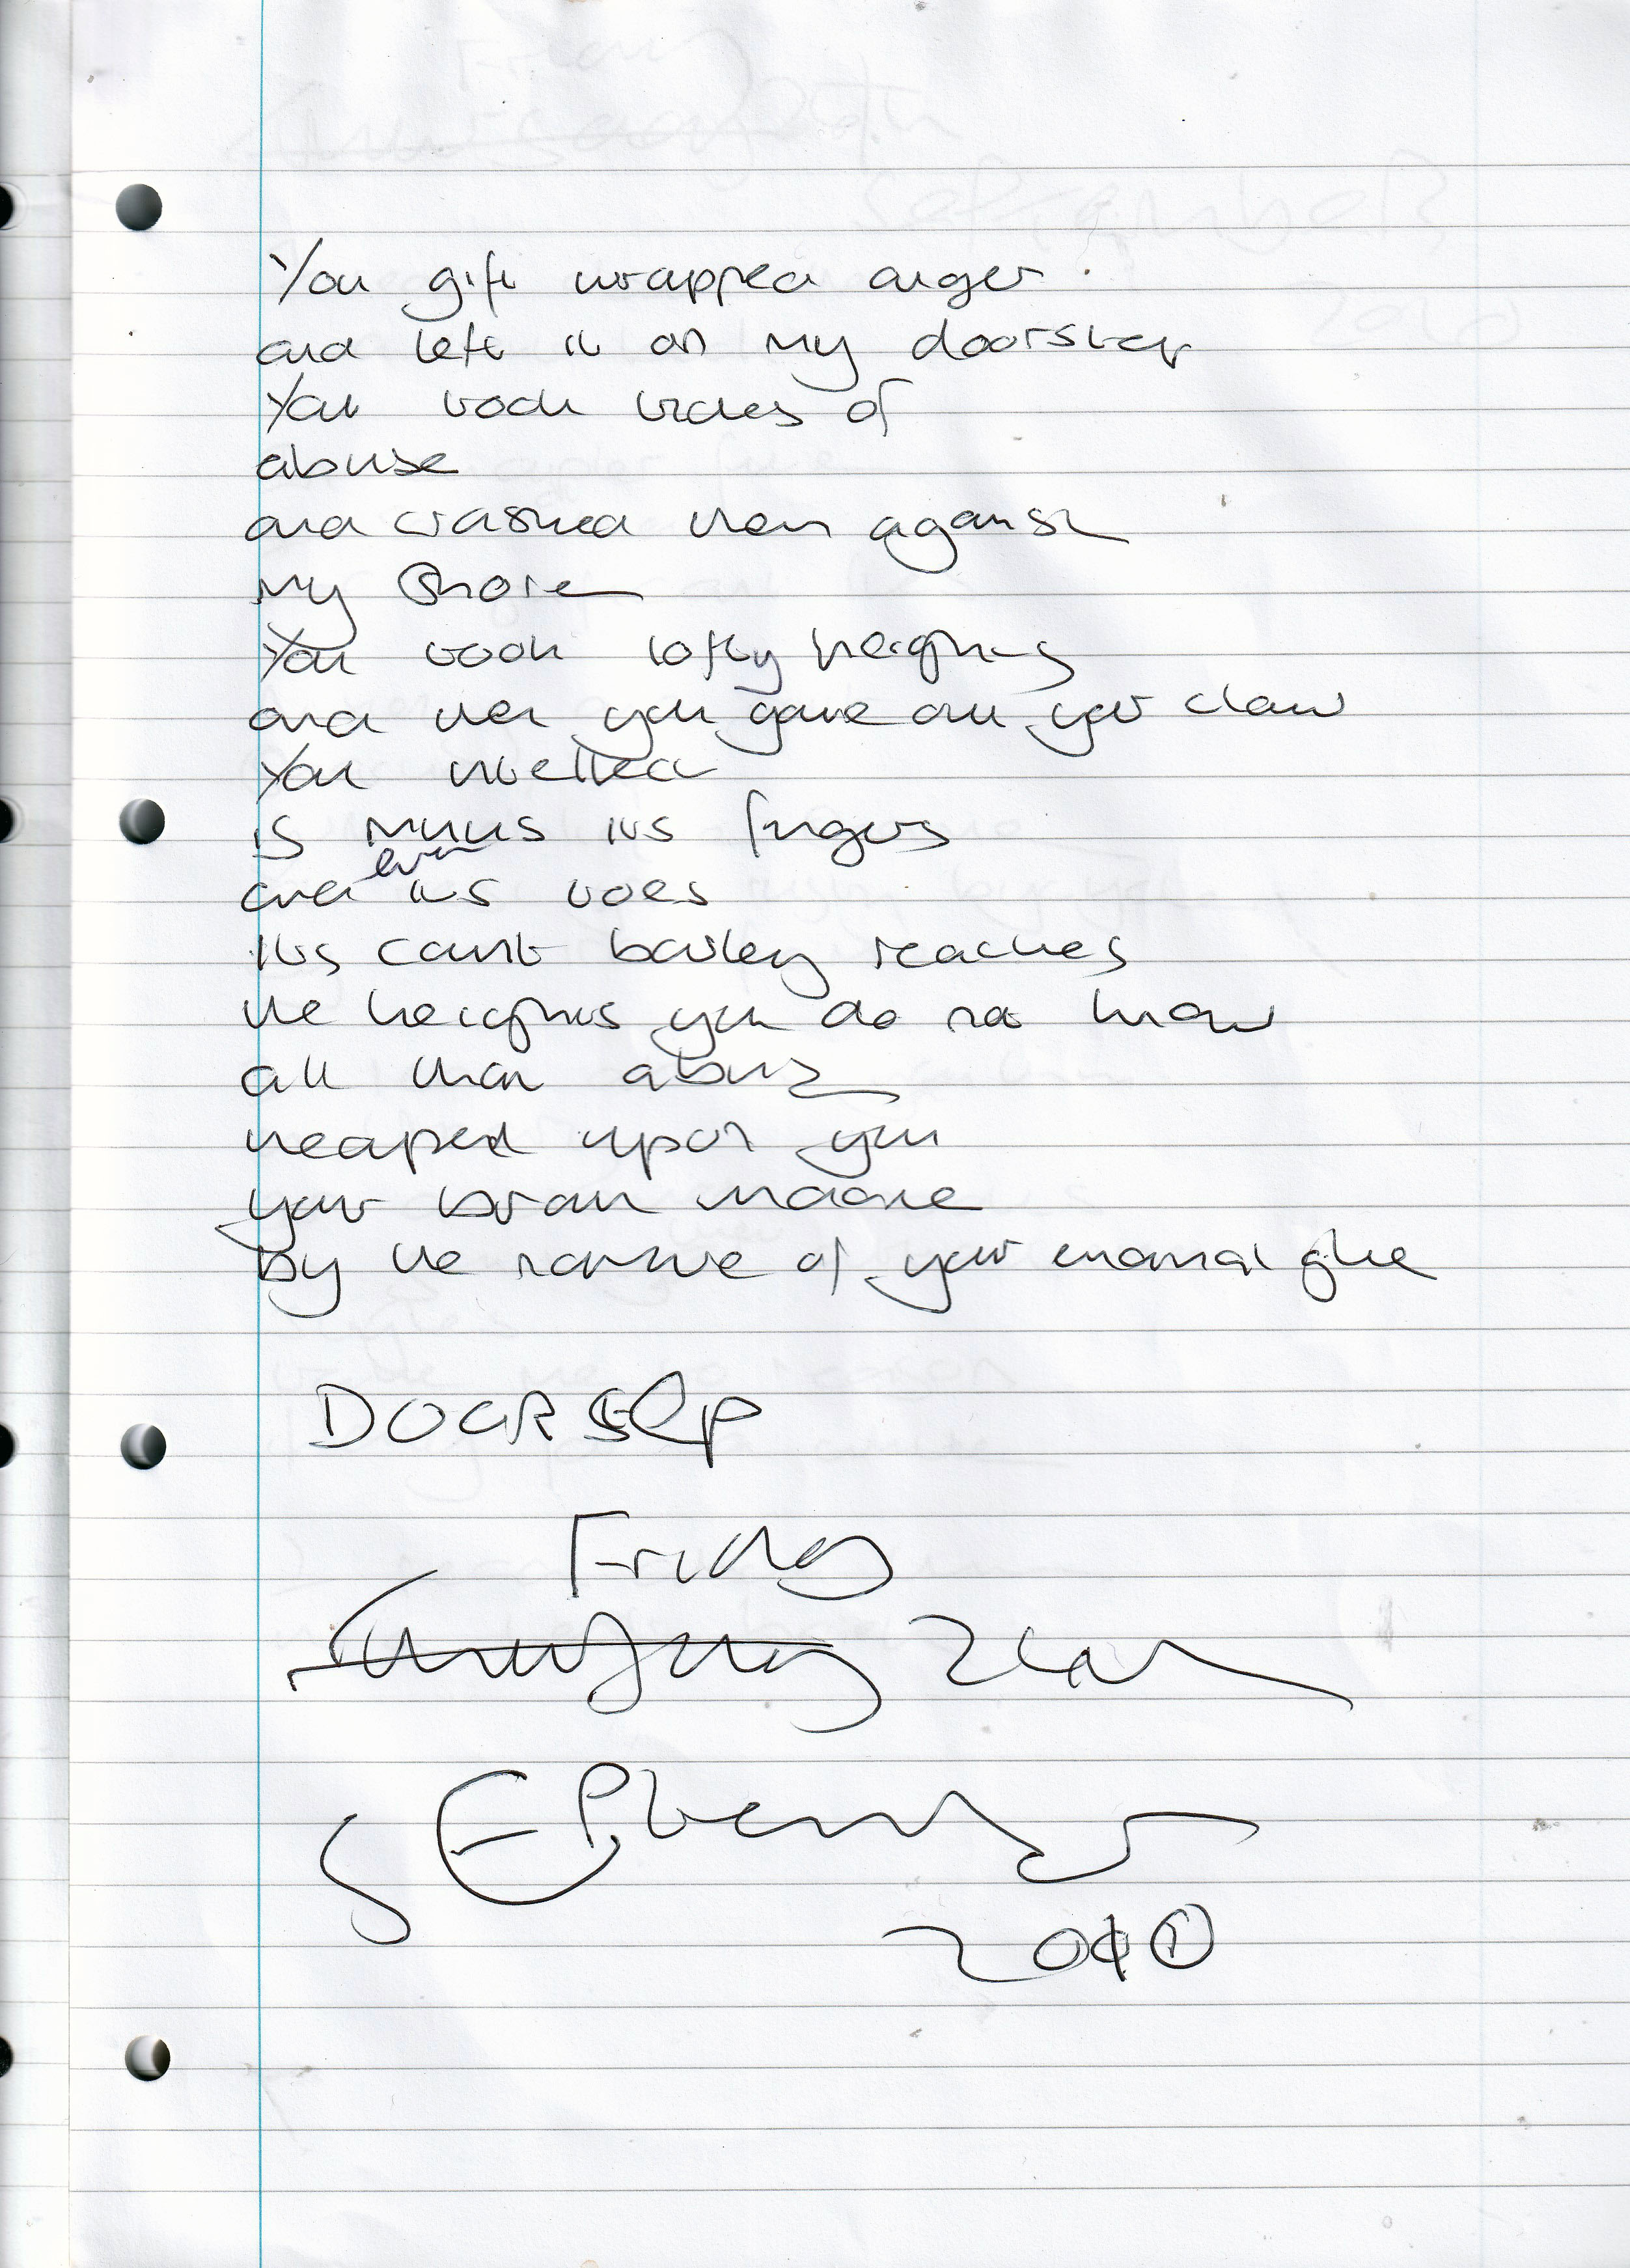 You gift wrapped anger.
and left it on my doorstep
You took tides of
abuse
and crashed them against
my Shore
You took lofty heights
and then you gave all your claw
You
is minus its fingers
and even its toes
its can't barley reaches
the heights you do not know
all that abuse
heaped upon you
your brain
by the narrative of your enamal glue
DOORSTEP
Friday
SEPtember
2010